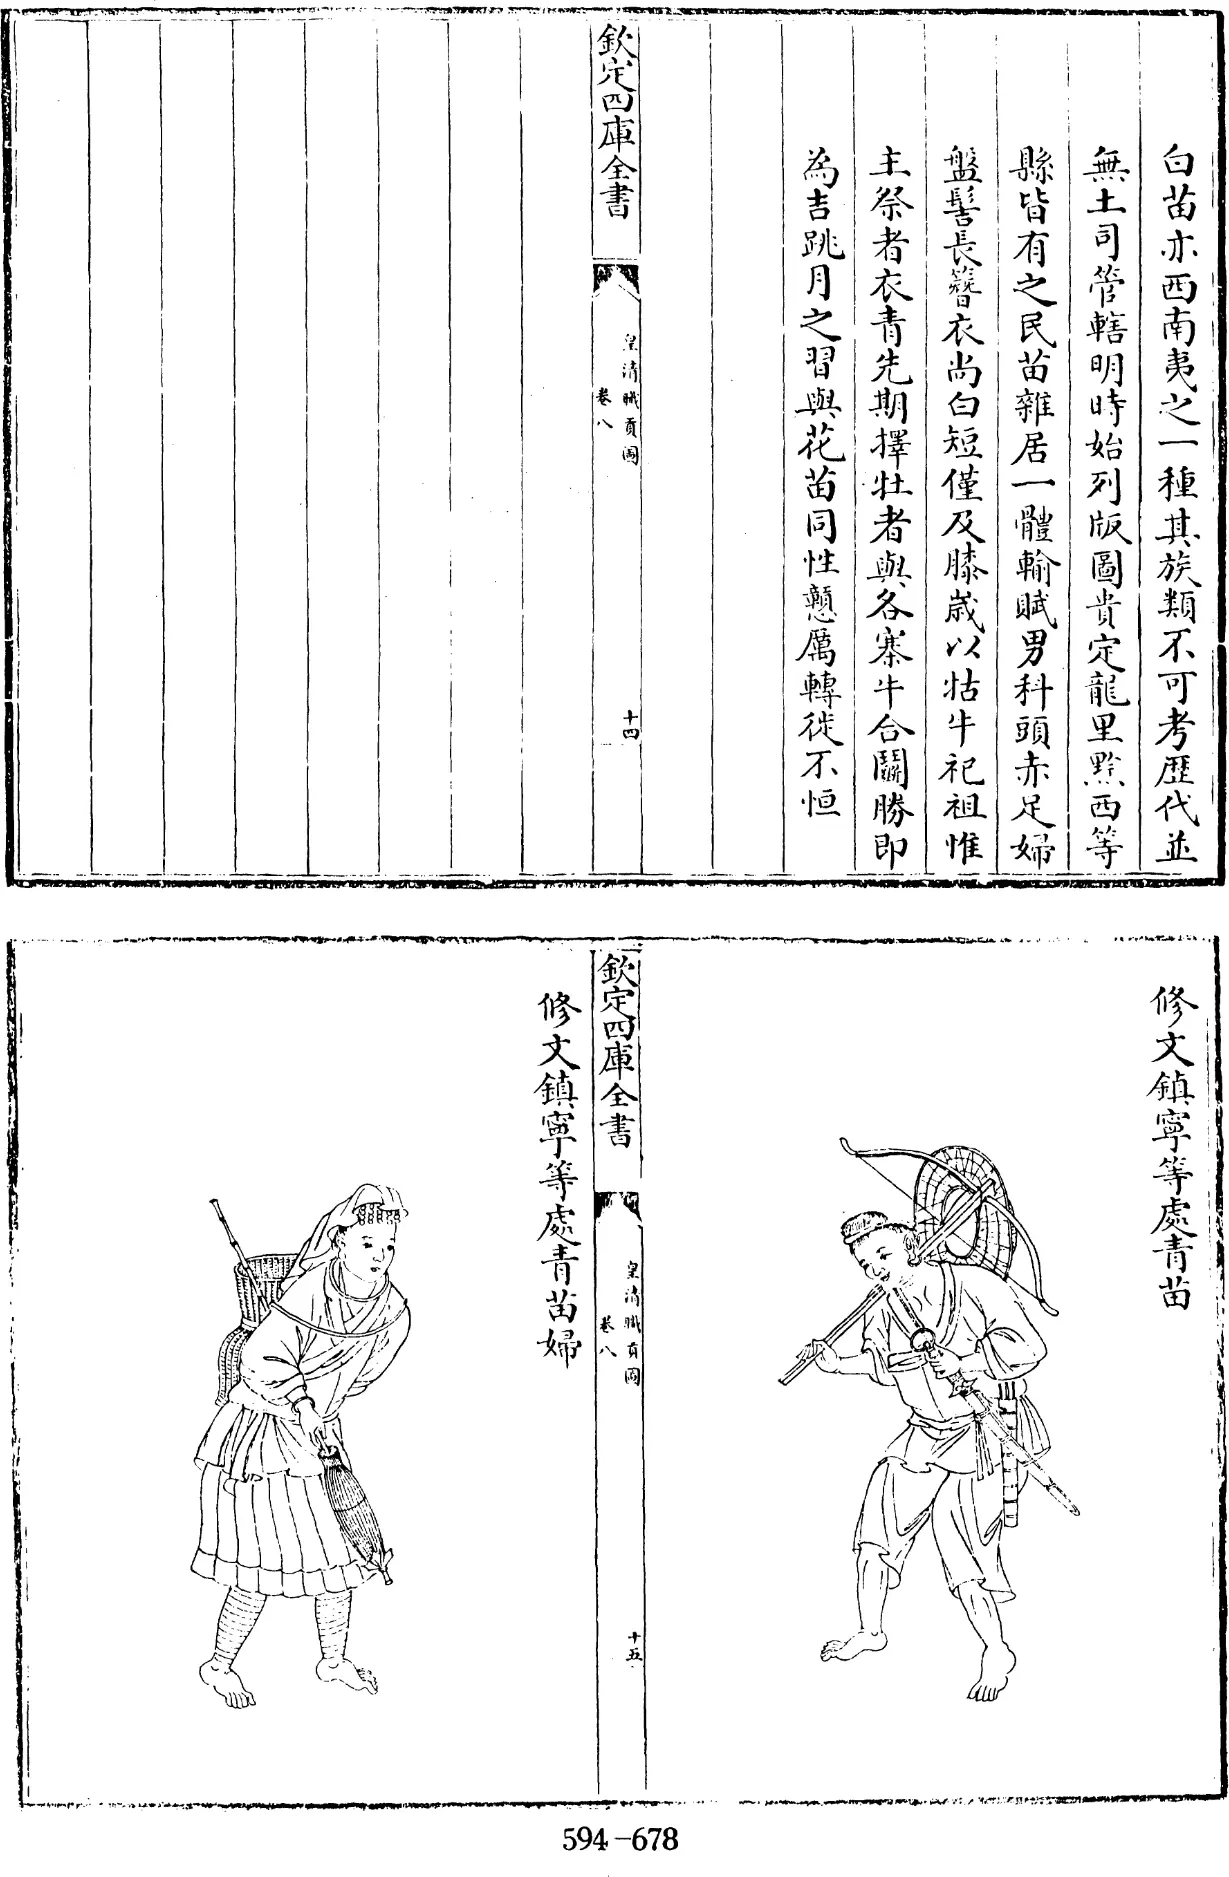 白苗亦西南夷之一種其族類不可考歷代並
無土司管轄明時始列版圖貴定龍里黔西等
縣皆有之民苗雜居一體輸賦男科頭赤足婦
盤髻長簪衣尚白短僅及膝歲以牯牛祀祖惟
主祭者衣青先期擇壯者與各寨牛合鬭勝即
為吉跳月之習與花苗同性戇厲轉徙不恒
欽定四庫全書
皇清職貢圖
卷八
十四
修文鎮寧等處青苗
欽定四庫全書
皇清職貢圖
卷八
十五
修文鎮寧等處青苗婦
594-678